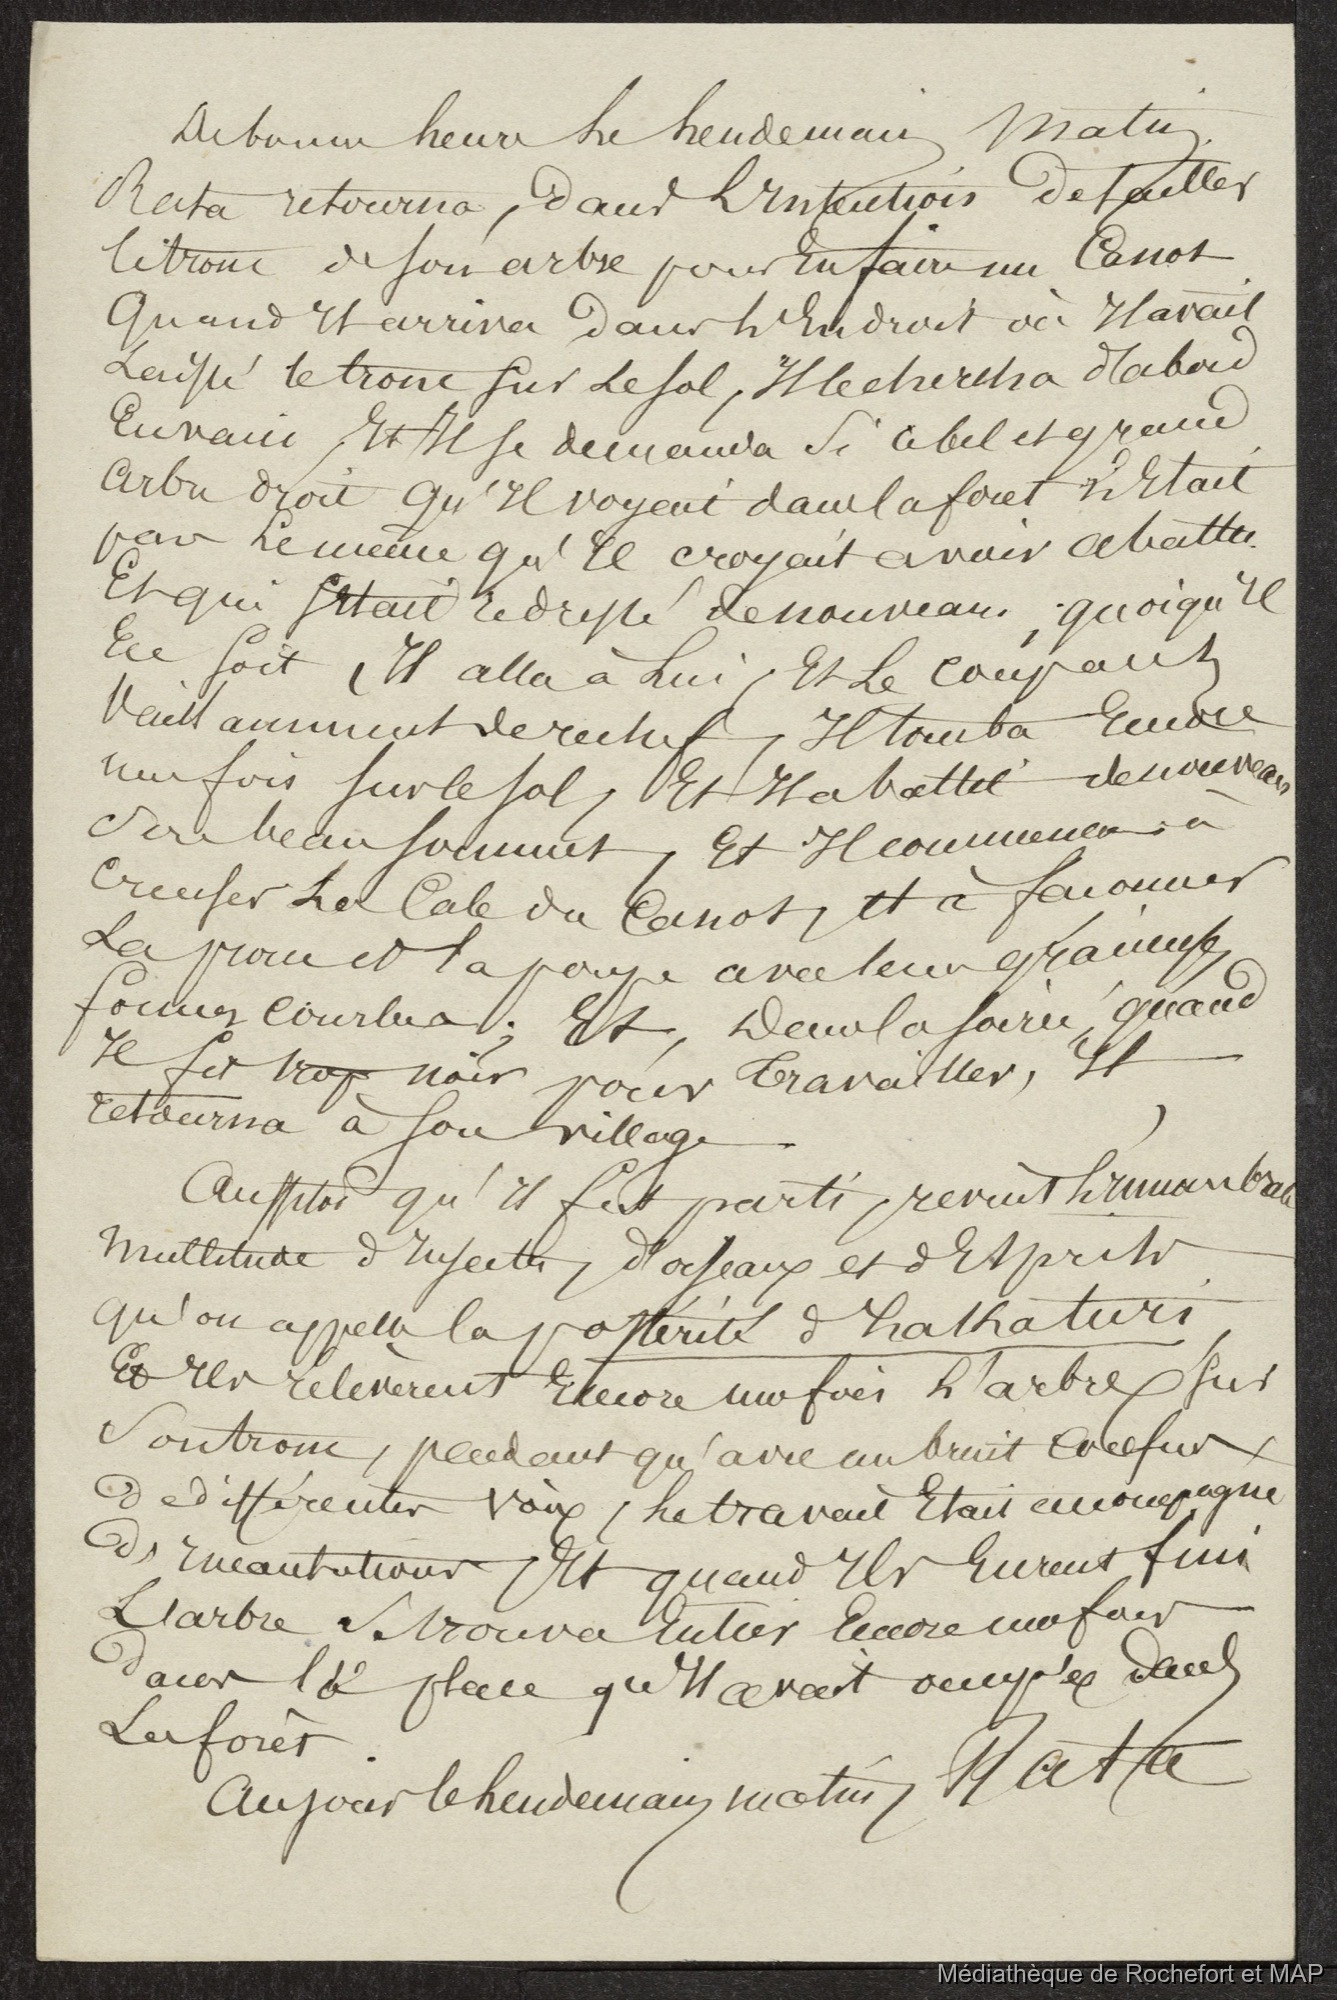 De bonne heure le lendemain matin
Rata retourna, dans l'Intention de tailler
le tronc de son arbre pour En faire un Canot
Quand Il arriva dans l'Endroit où Il avait
Laissé le tronc sur Le sol, Il le chercha d'abord
En vain, Et Il se demanda si ce bel et grand
Arbre droit qu'Il voyait dans la foret n'Etait
pas Le même qu'Il croyait avoir abattu
Et qui s'Etait redressé de nouveau, quoiqu'Il
En soit, Il alla à Lui, Et Le coupant
Vaillamment derechef, Il tomba Encore
une fois sur le sol, Et Il abattit de nouveau
son beau sommet, Et Il commença à
Creuser La Cale du Canot, et à façonner
La proue et la poupe avec leurs gracieuses
formes courbes; Et, Dans la soirée, quand
Il fit trop noir pour travailler, Il
retourna à son village.
Aussitôt qu'Il fut parti, revint l'Innombrable
Multitude d'Insectes, d'oiseaux et d'Esprits
qu'on appelle la postérité d'hakaturi,
Et Ils relevèrent Encore une fois L'arbre sur
Son tronc, pendant qu'avec un bruit confus
De différentes voix, le travail Etait accompagné
D'Incantations, Et quand Ils Eurent fini
L'arbre se trouva Entier Encore une fois
Dans la place qu'Il avait occupée dans
La forêt.
Au jour le lendemain matin, Rata
Médiathèque de Rochefort et MAP